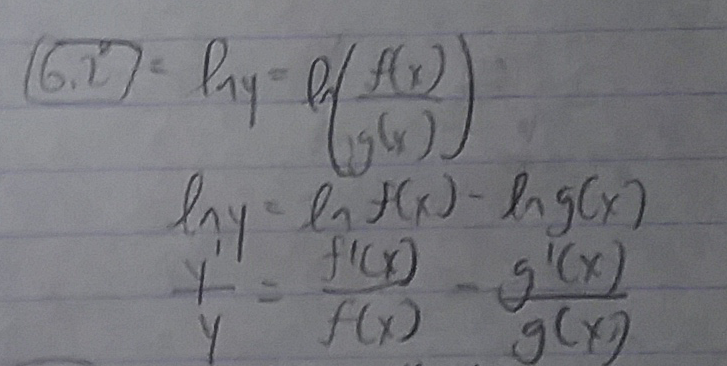 (6.2) = ln y = ln(f(x)/g(x))
ln y = ln f(x) - ln g(x)
y'/y = f'(x)/f(x) - g'(x)/g(x)